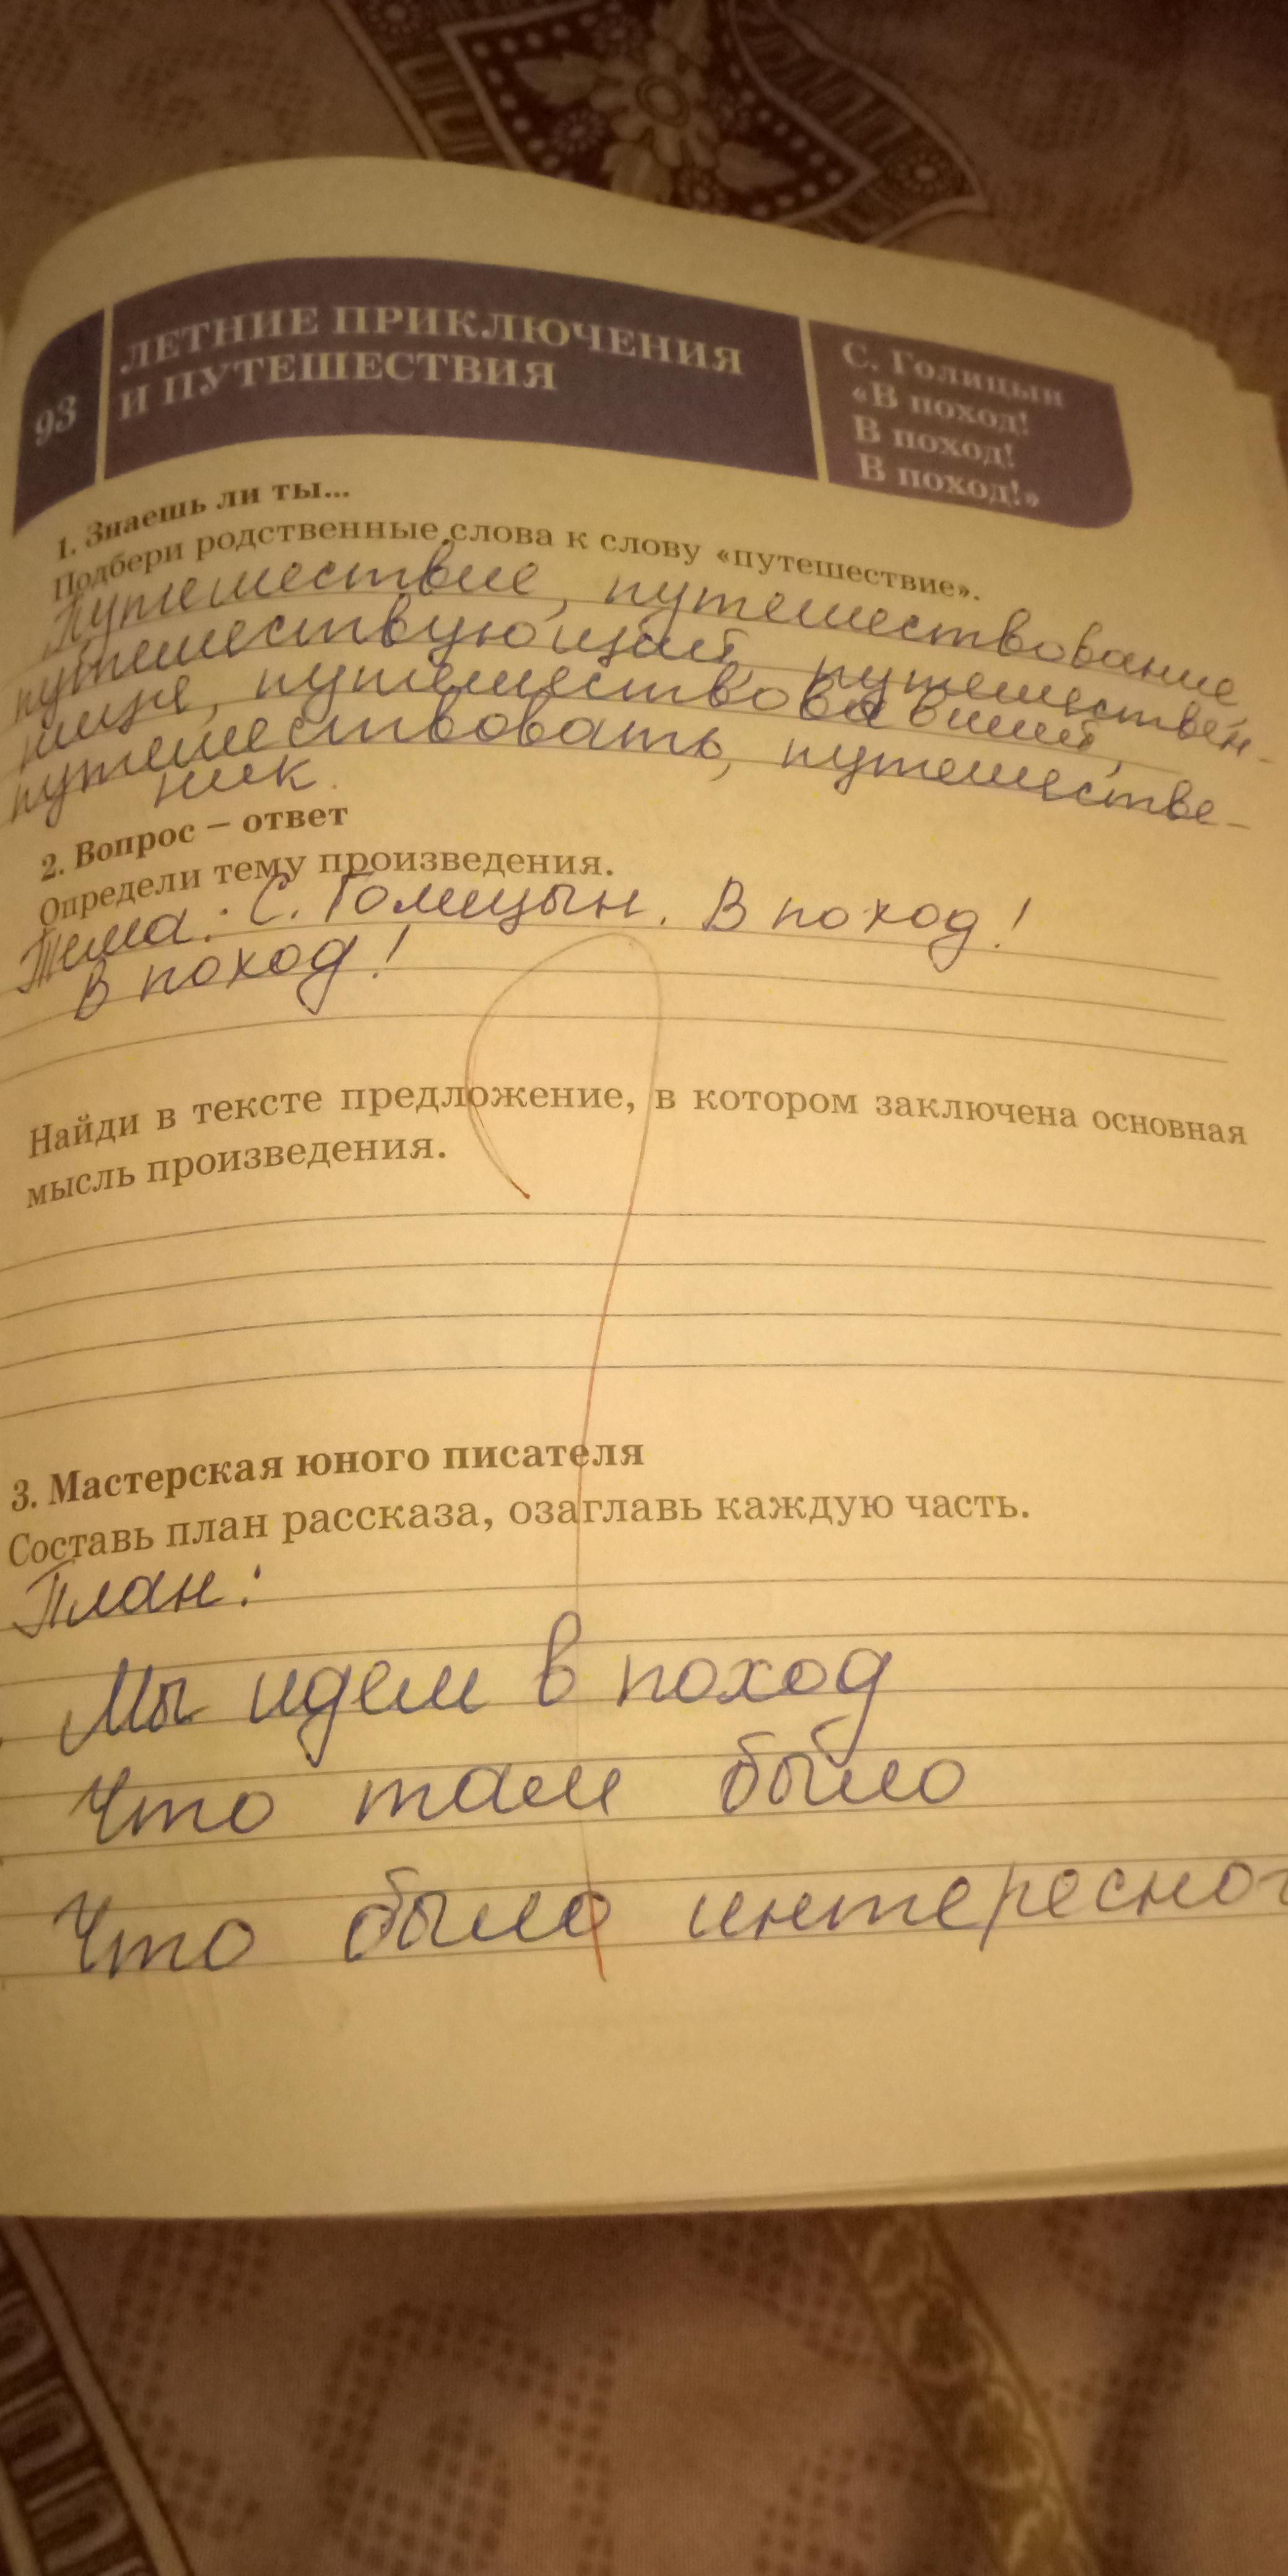 93
ЛЕТНИЕ ПРИКЛЮЧЕНИЯ
И ПУТЕШЕСТВИЯ
С. Голицын
«В поход!
В поход!
В поход!»
1. Знаешь ли ты...
Подбери родственные слова к слову «путешествие».
Путешествие, путешествование
путешествующий, путешествен-
нице, путешествовавший,
путешествовать, путешестве-
ник.
2. Вопрос – ответ
Определи тему произведения.
Тема: С. Голицын. В поход!
В поход!
Найди в тексте предложение, в котором заключена основная
мысль произведения.
3. Мастерская юного писателя
Составь план рассказа, озаглавь каждую часть.
План:
Мы идем в поход
Что там было
Что было интересног